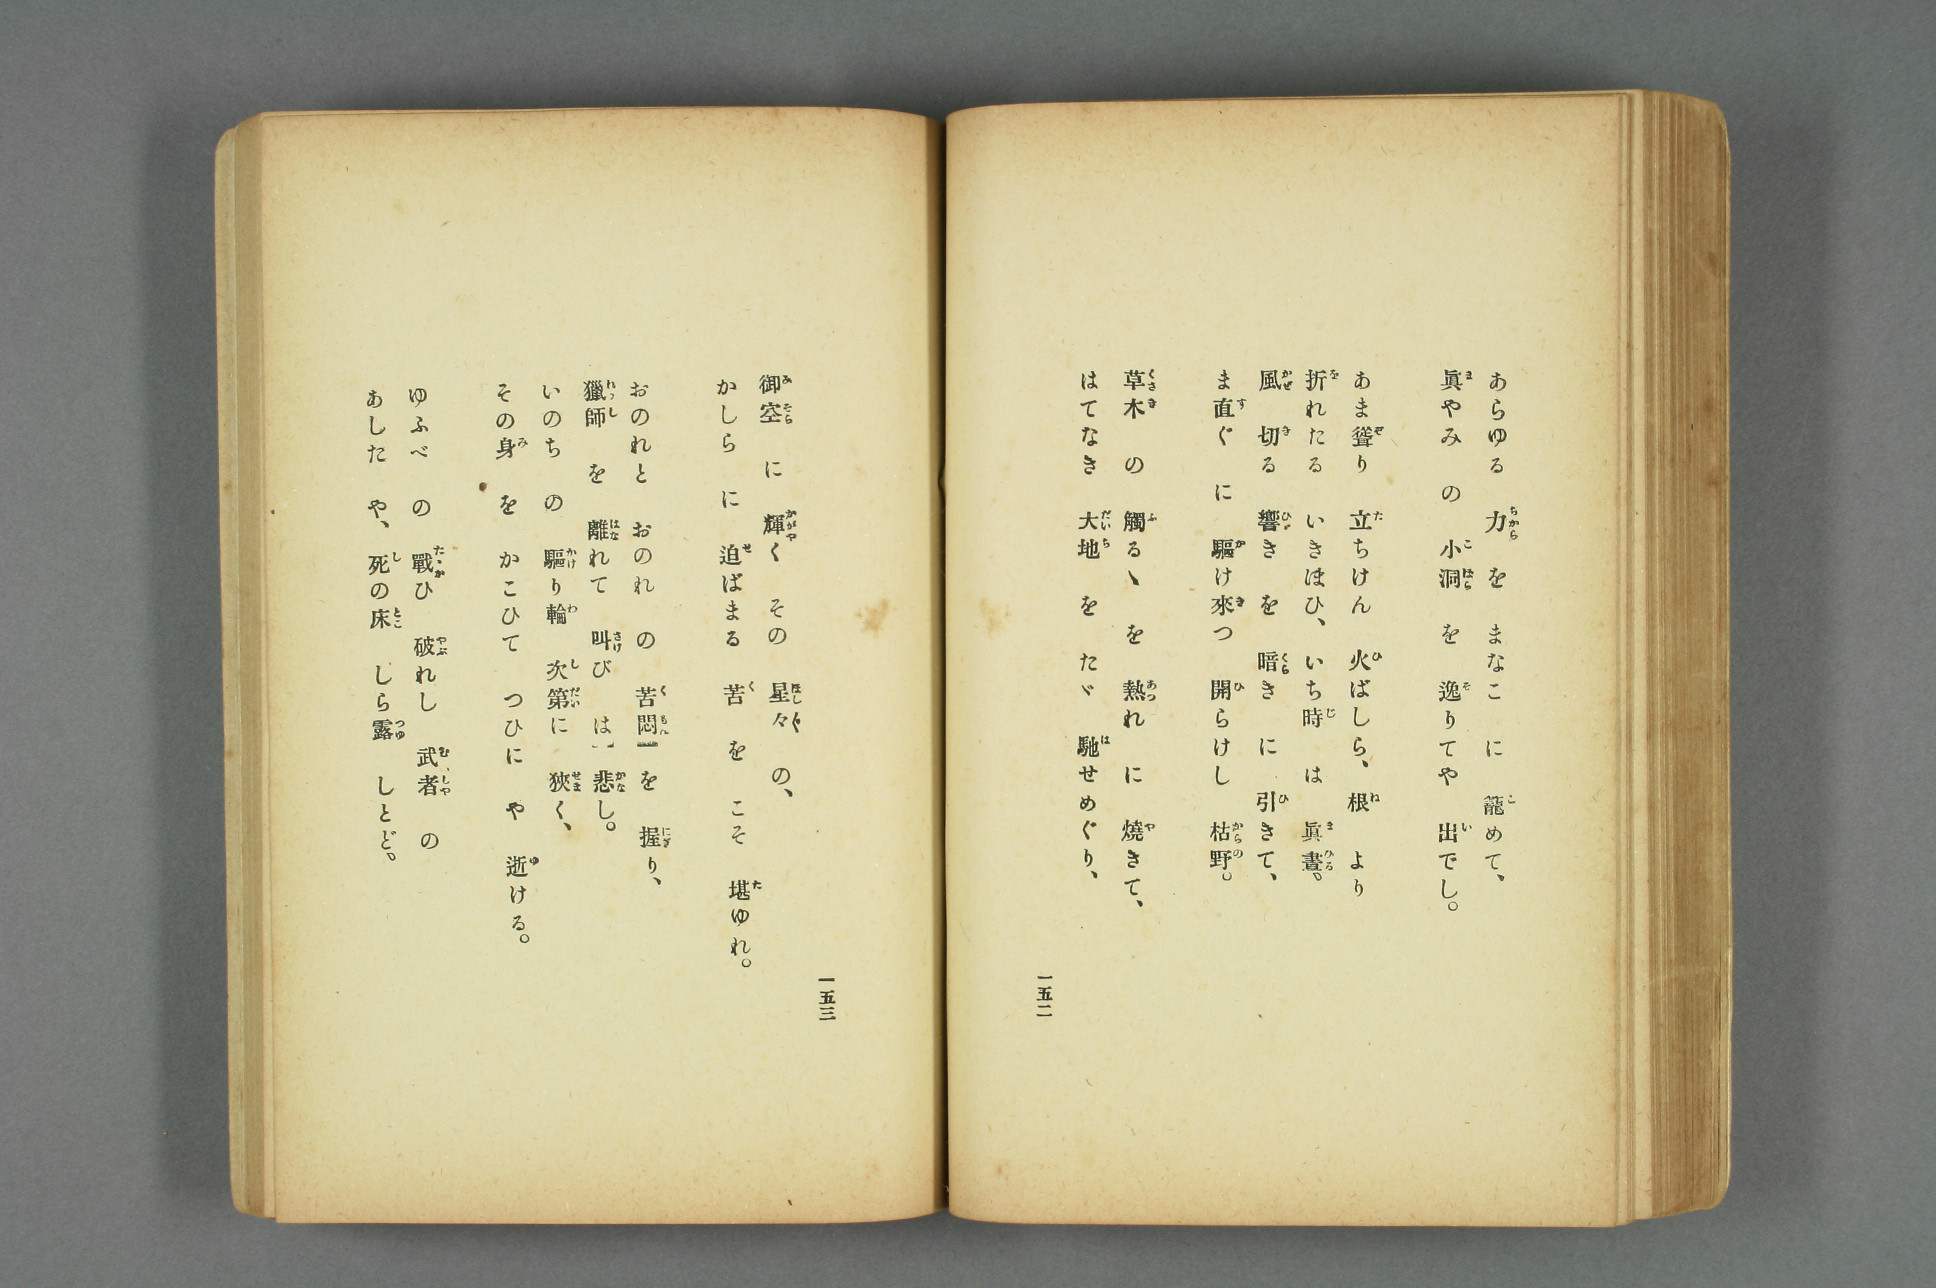 あらゆる 力を まなこ に 籠めて、
眞やみ の 小洞 を 逸りてや 出でし。
あま聳り 立ちけん 火ばしら、根 より
折れたる いきほひ、いち時 は 眞晝。
風 切る 響きを 暗きに 引きて、
ま直ぐ に 驅け來つ 開らけし 枯野。
草木 の 觸るヽを 熱れ に 燒きて、
はてなき 大地 を たヾ 馳せめぐり、
一五二
御空 に 輝く その 星々 の、
かしら に 迫ばまる 苦 を こそ 堪ゆれ。
おのれと おのれ の 苦悶 を 握り、
獵師 を 離れて 叫び は 悲し。
いのち の 驅り輪 次第に 狹く、
その身 を かこひて つひに や 逝ける。
ゆふべ の 戰ひ 破れし 武者 の
あした や、死の床 しら露 しとど。
一五三